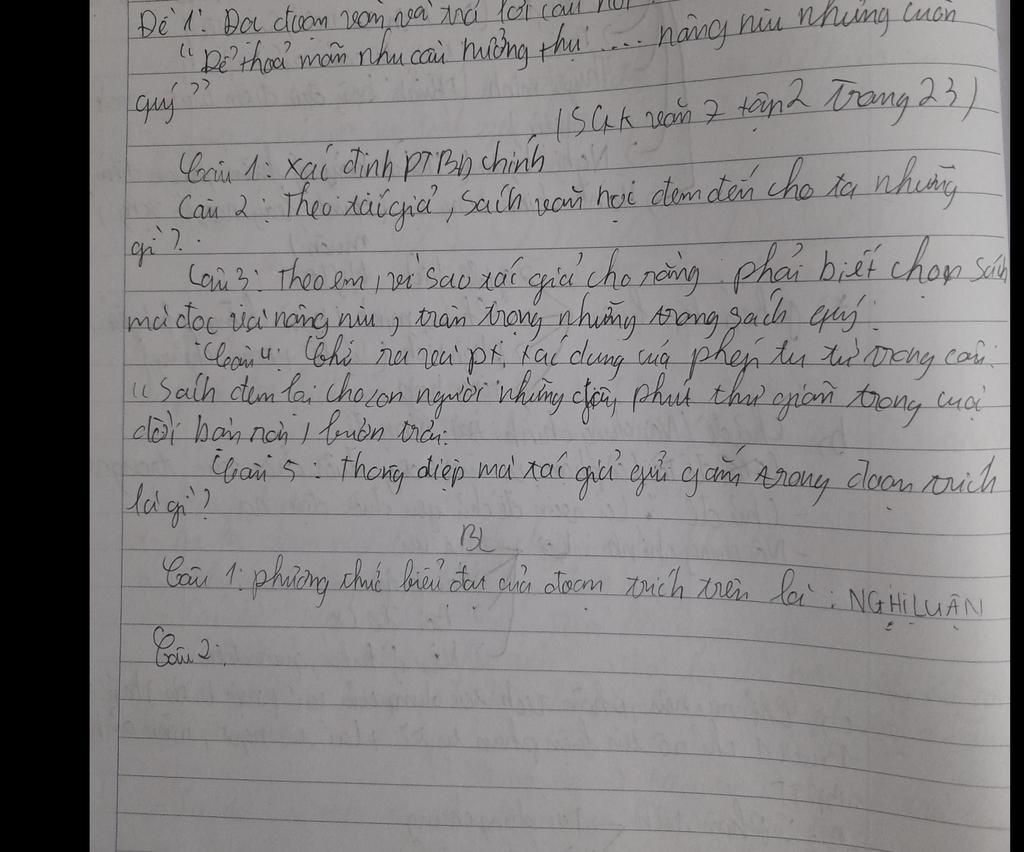 Đề 1: Đọc đoạn văn và trả lời câu hỏi
"Để thoả mãn nhu cầu hưởng thụ .... nâng niu những cuốn
quý"
(SGK văn 7 tập 2 Trang 23)
Câu 1: Xác định PTBĐ chính
Câu 2: Theo tác giả, sách văn học đem đến cho ta những
gì?.
Câu 3: Theo em, vì sao tác giả cho rằng phải biết chọn sách
mà đọc và nâng niu, trân trọng những trang sách quý.
Câu 4: Chỉ ra và pt tác dụng của phép tu từ trong câu:
"Sách đem lại cho con người những phút thư giãn trong cuộc
đời bận rộn, buồn trôi.
Câu 5: Thông điệp mà tác giả gửi gắm trong đoạn trích
là gì?
BL
Câu 1: phương thức biểu đạt của đoạn trích trên là: NGHỊ LUẬN
Câu 2: